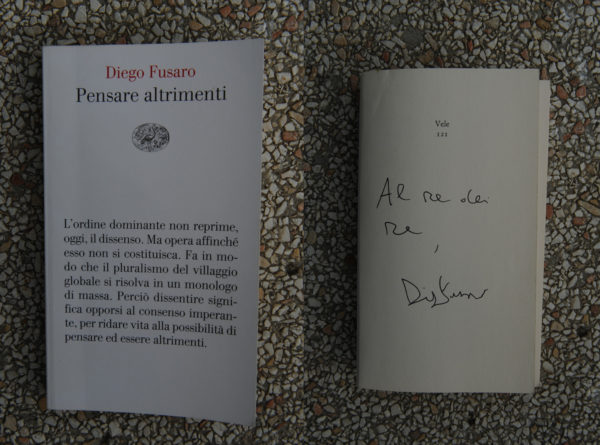 Diego Fusaro
Pensare altrimenti
L'ordine dominante non reprime,
oggi, il dissenso. Ma opera affinché
esso non si costituisca. Fa in mo-
do che il pluralismo del villaggio
globale si risolva in un monologo
di massa. Perciò dissentire signi-
fica opporsi al consenso imperan-
te, per ridare vita alla possibilità di
pensare ed essere altrimenti.
Vele
121
Al re dei
re,